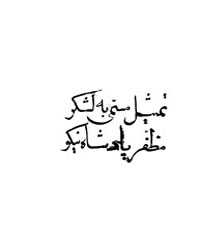 تمثیل به لشکر
مظفر پادشاه نیکو